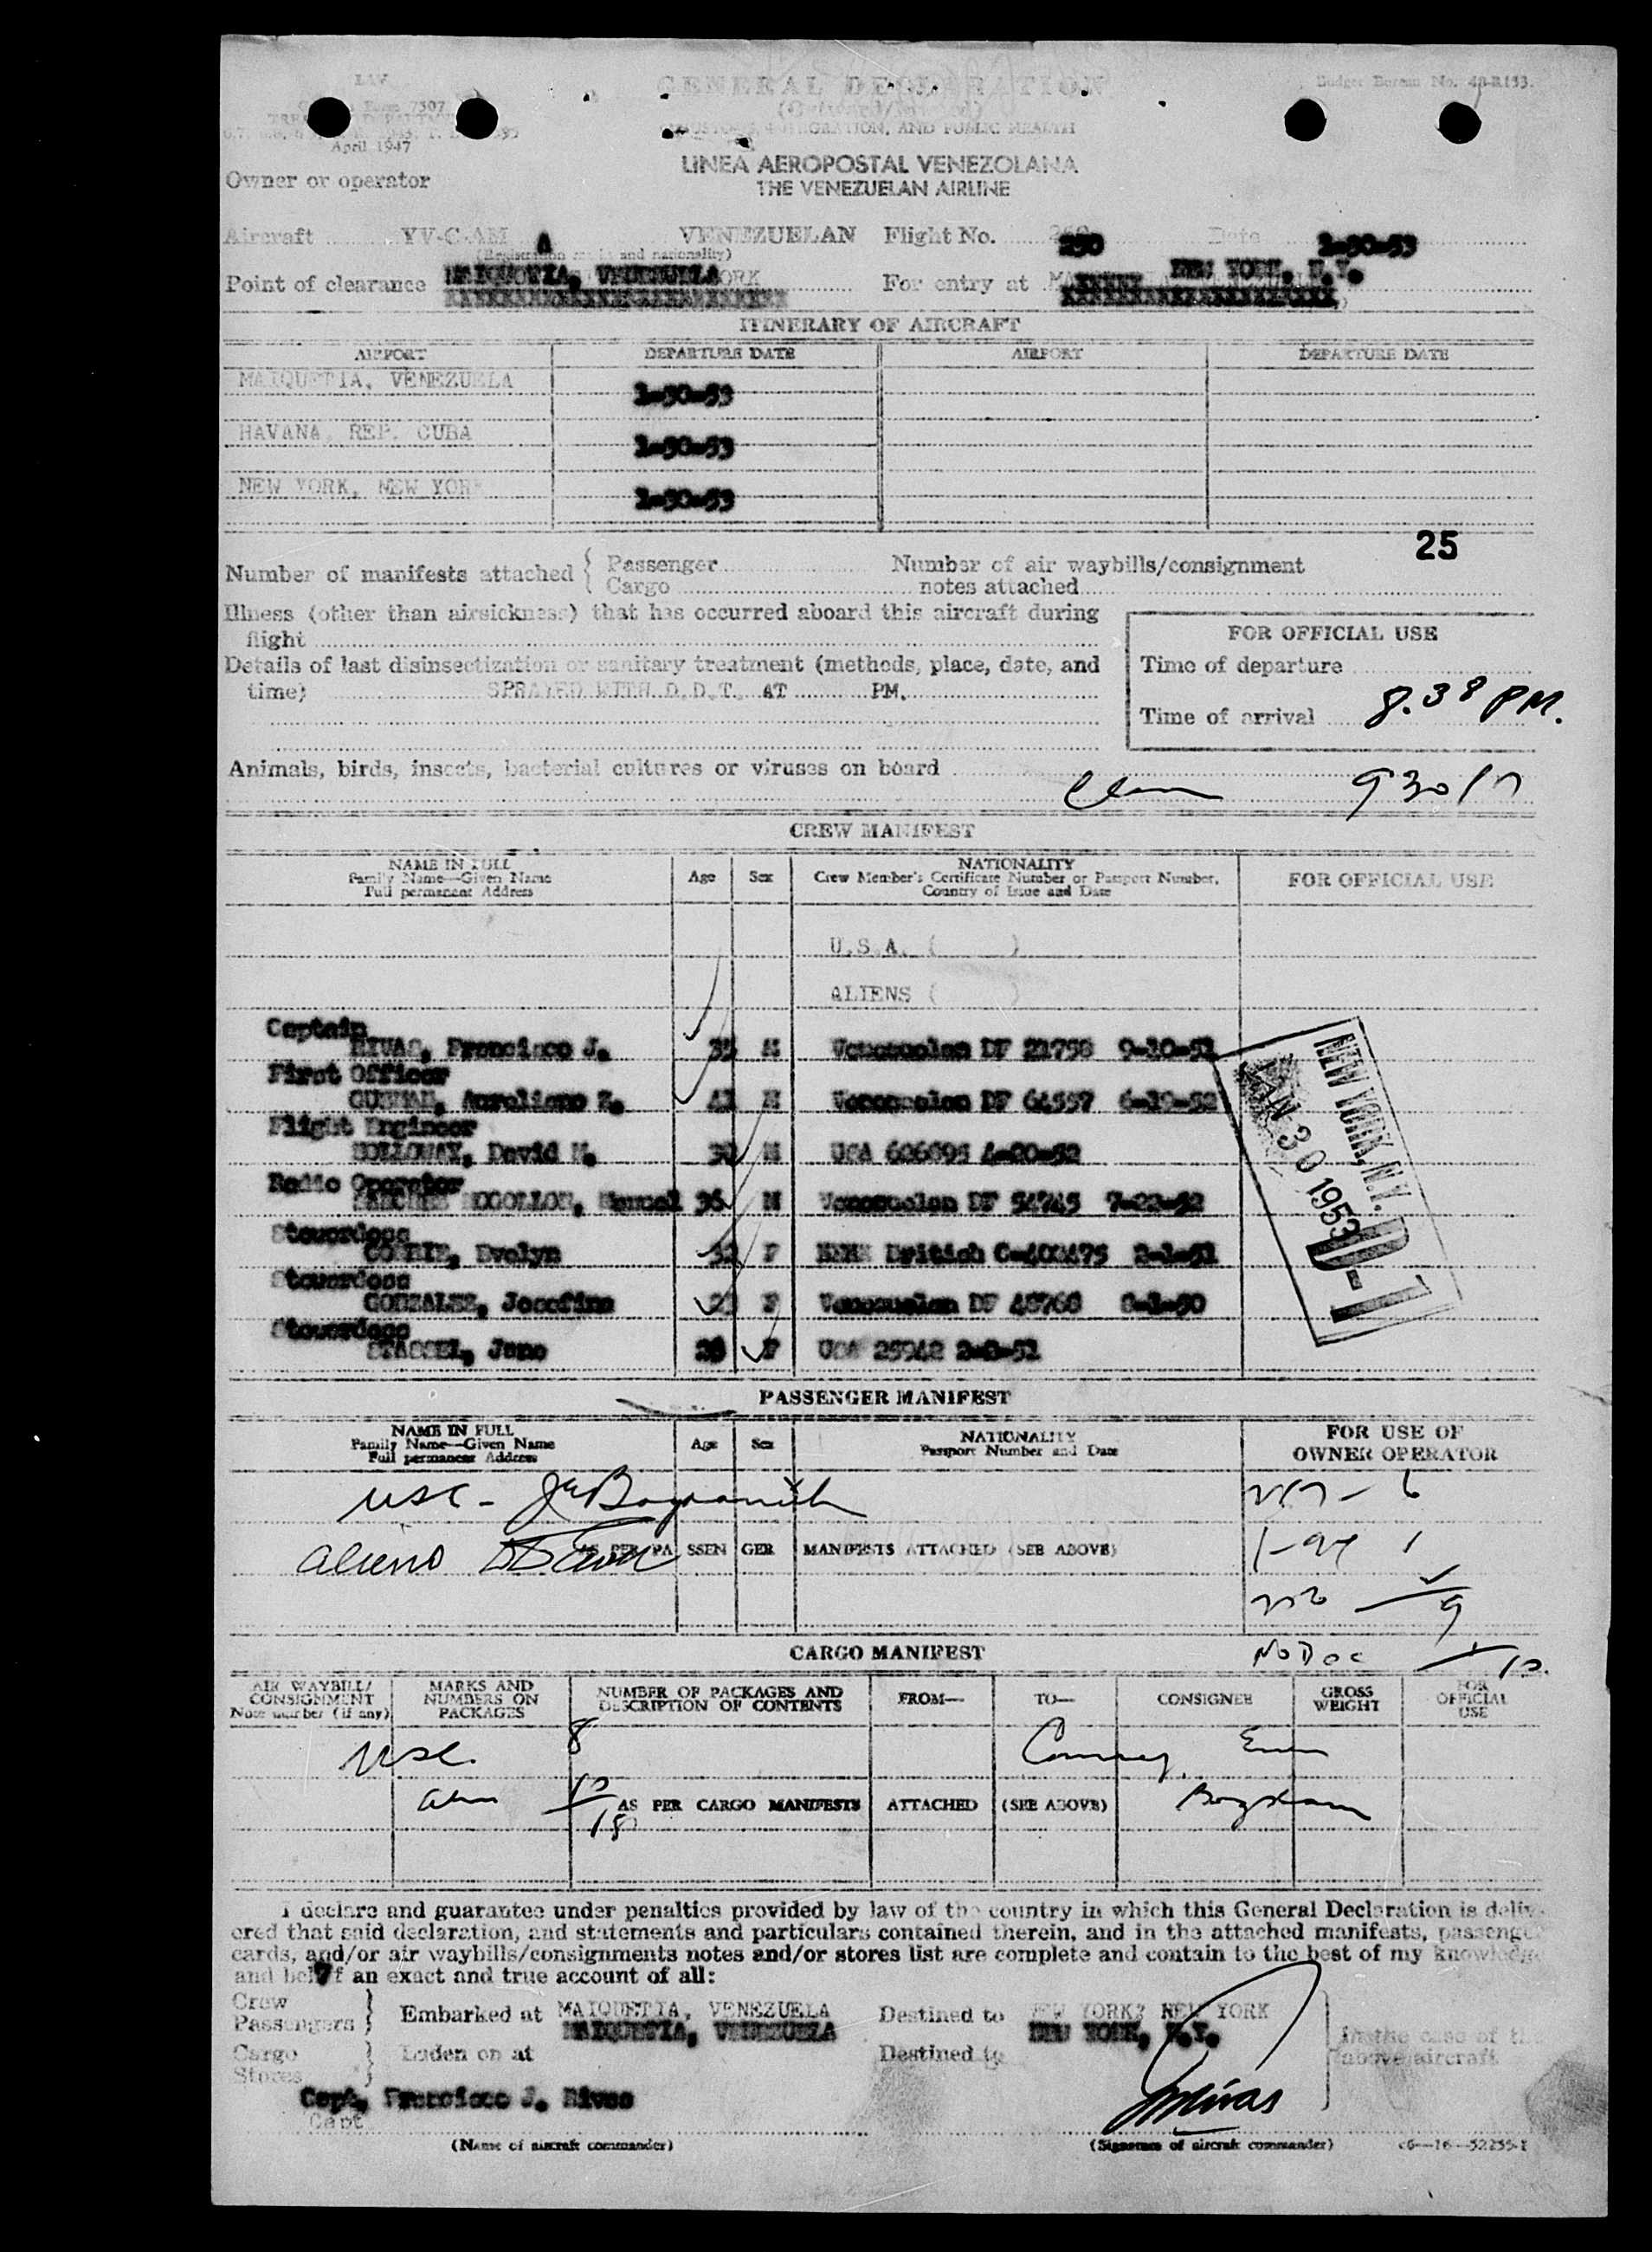 GENERAL DECLARATION
Budget Bureau No. 48-R153.
April 1947
CUSTOMS, IMMIGRATION, AND PUBLIC HEALTH
LINEA AEROPOSTAL VENEZOLANA
THE VENEZUELAN AIRLINE
Owner or operator
Aircraft YV-C-AM A VENEZUELAN Flight No. 250 Date 1-30-53
(Registration marks and nationality)
Point of clearance MAIQUETIA, VENEZUELA For entry at NEW YORK, N.Y.
ITINERARY OF AIRCRAFT
AIRPORT DEPARTURE DATE AIRPORT DEPARTURE DATE
MAIQUETIA, VENEZUELA 1-30-53
HAVANA, REP. CUBA 1-30-53
NEW YORK, NEW YORK 1-30-53
25
Number of manifests attached { Passenger Number of air waybills/consignment
Cargo notes attached
Illness (other than airsickness) that has occurred aboard this aircraft during
flight
FOR OFFICIAL USE
Details of last disinsectization or sanitary treatment (methods, place, date, and
time) SPRAYED WITH D.D.T. AT PM.
Time of departure
Time of arrival 8.38 PM.
Animals, birds, insects, bacterial cultures or viruses on board
930
CREW MANIFEST
NAME IN FULL
Family Name—Given Name
Full permanent Address
Age Sex
NATIONALITY
Crew Member's Certificate Number or Passport Number,
Country of Issue and Date
FOR OFFICIAL USE
U.S.A. ( )
ALIENS ( )
Captain
RIVAS, Francisco J. 35 M Venezuelan DF 21758 9-10-51
First Officer
GUZMAN, Aureliano Z. 41 M Venezuelan DF 64557 6-19-52
Flight Engineer
HOLLOWAY, David M. 30 M USA 606695 4-20-52
Radio Operator
SANCHEZ MOGOLLON, Manuel 36 M Venezuelan DF 54745 7-22-52
Stewardess
CORRIE, Evelyn 32 F British C-402475 2-1-51
Stewardess
GONZALEZ, Josefina 23 F Venezuelan DF 48768 8-1-50
Stewardess
STASSEL, Jane 28 F USA 25942 2-8-51
NEW YORK, N.Y.
JAN 30 1953
D-1
PASSENGER MANIFEST
NAME IN FULL
Family Name—Given Name
Full permanent Address
Age Sex
NATIONALITY
Passport Number and Date
FOR USE OF
OWNER OPERATOR
usc -
aliens
AS PER PASSENGER MANIFESTS ATTACHED (SEE ABOVE)
CARGO MANIFEST
No Doc
AIR WAYBILL/
CONSIGNMENT
Note number (if any)
MARKS AND
NUMBERS ON
PACKAGES
NUMBER OF PACKAGES AND
DESCRIPTION OF CONTENTS
FROM— TO— CONSIGNEE
GROSS
WEIGHT
FOR
OFFICIAL
USE
usc. 8
10
AS PER CARGO MANIFESTS ATTACHED (SEE ABOVE)
18
I declare and guarantee under penalties provided by law of the country in which this General Declaration is deliv-
ered that said declaration, and statements and particulars contained therein, and in the attached manifests, passenger
cards, and/or air waybills/consignments notes and/or stores list are complete and contain to the best of my knowledge
and belief an exact and true account of all:
7
Crew
Passengers } Embarked at MAIQUETIA, VENEZUELA Destined to NEW YORK, NEW YORK
MAIQUETIA, VENEZUELA NEW YORK, N.Y.
In the case of the
above aircraft
Cargo
Stores } Laden on at Destined to
Capt. Francisco J. Rivas
Capt
(Name of aircraft commander) (Signature of aircraft commander) 16—52255-1